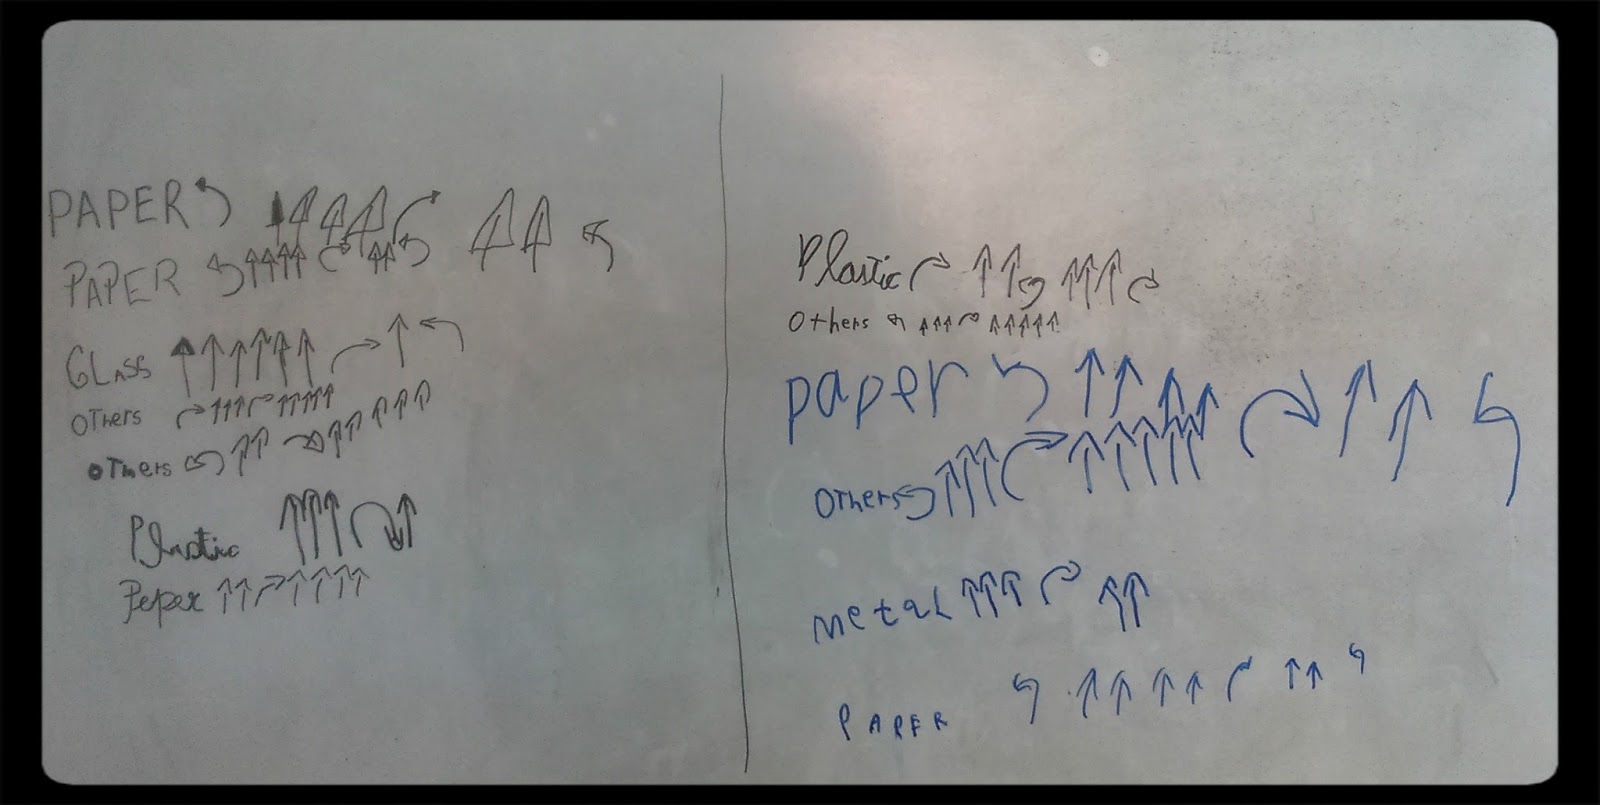 PAPER
PAPER
GLASS
OTHERS
OTHERS
Plastic
Peper
Plastic
Others
paper
Others
metal
PAPER